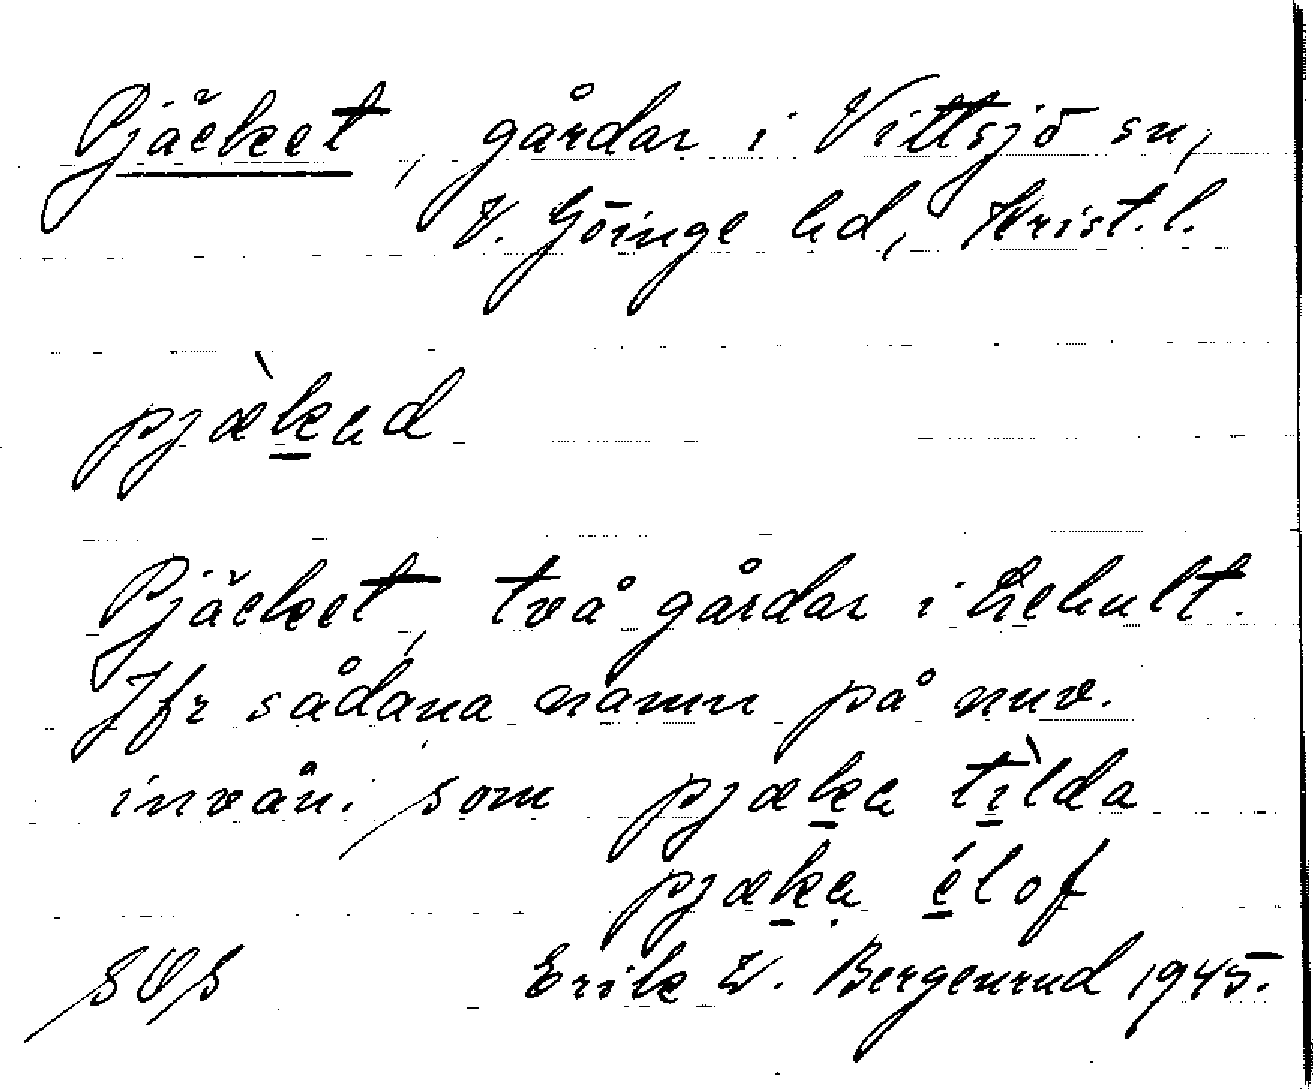 Pjäcket, gårdar i Vittsjö sn,
V. Göinge hd, Krist. l.
pjæ̀kad
Pjäcket, två gårdar i Ekhult.
Jfr sådana namn på nuv.
invån. som pjæka tìlda
pjæka élof
SOS Erik W. Bergenrud 1945.